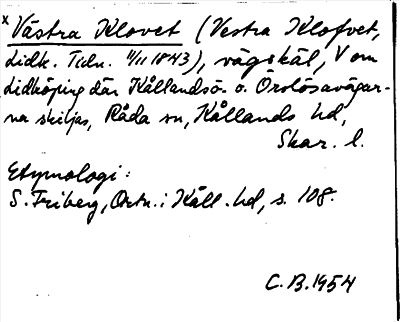 x Västra Klovet (Vestra Klofvet,
Lidk. Tidn. 4/11 1843), vägskäl, V om
Lidköping där Kållandsö- o. Örslösavägar-
na skiljas, Råda sn, Kållands hd,
Skar. l.
Etymologi:
S. Friberg, Ortn. i Kåll. hd, s. 108.
C.B. 1954